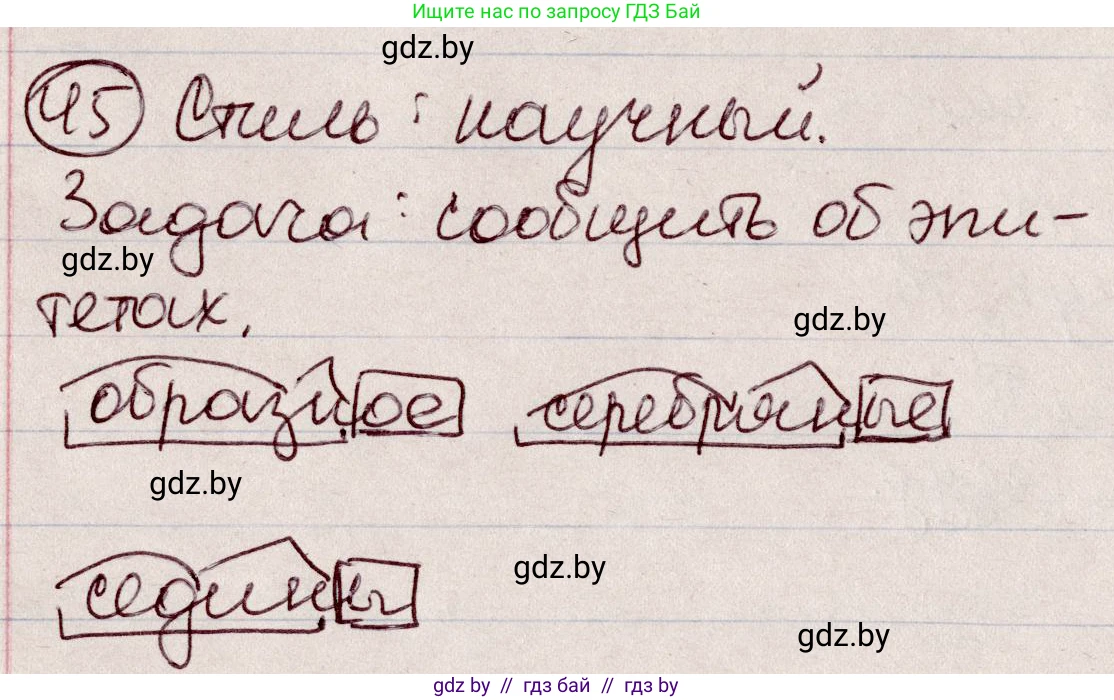 Ищите нас по запросу ГДЗ Бай
gdz.by
45 Стиль: научный.
Задача: сообщить об эпи-
gdz.by
тетах.
gdz.by
образное серебряные
gdz.by
седины
gdz.by
gdz.by
gdz.by // гдз бай // гдз by